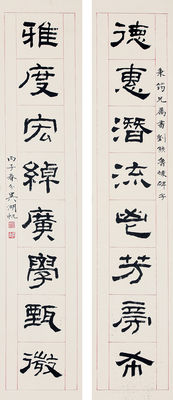 德惠潛流鬯芳旁布
秉筠兄屬書劉熊殘碑字
雅度宏綽廣學甄微
丙子春分吳湖帆